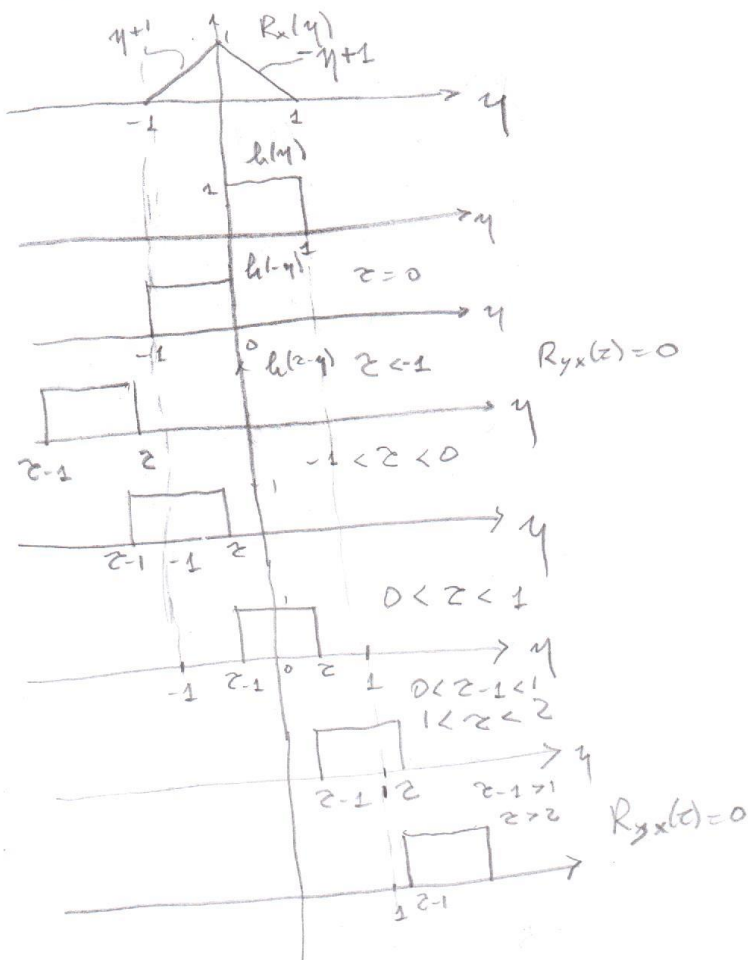 1
η+1 R_x(η)
1 -η+1
-1 1 η
h(η)
1
1 η
h(-η) τ=0
-1 0 η
h(τ-η) τ<-1 R_yx(τ)=0
τ-1 τ η
-1<τ<0
1
τ-1 -1 τ η
0<τ<1
1
-1 τ-1 0 τ 1 η
0<τ-1<1
1<τ<2
τ-1 1 τ η
τ-1>1
τ>2 R_yx(τ)=0
1 τ-1